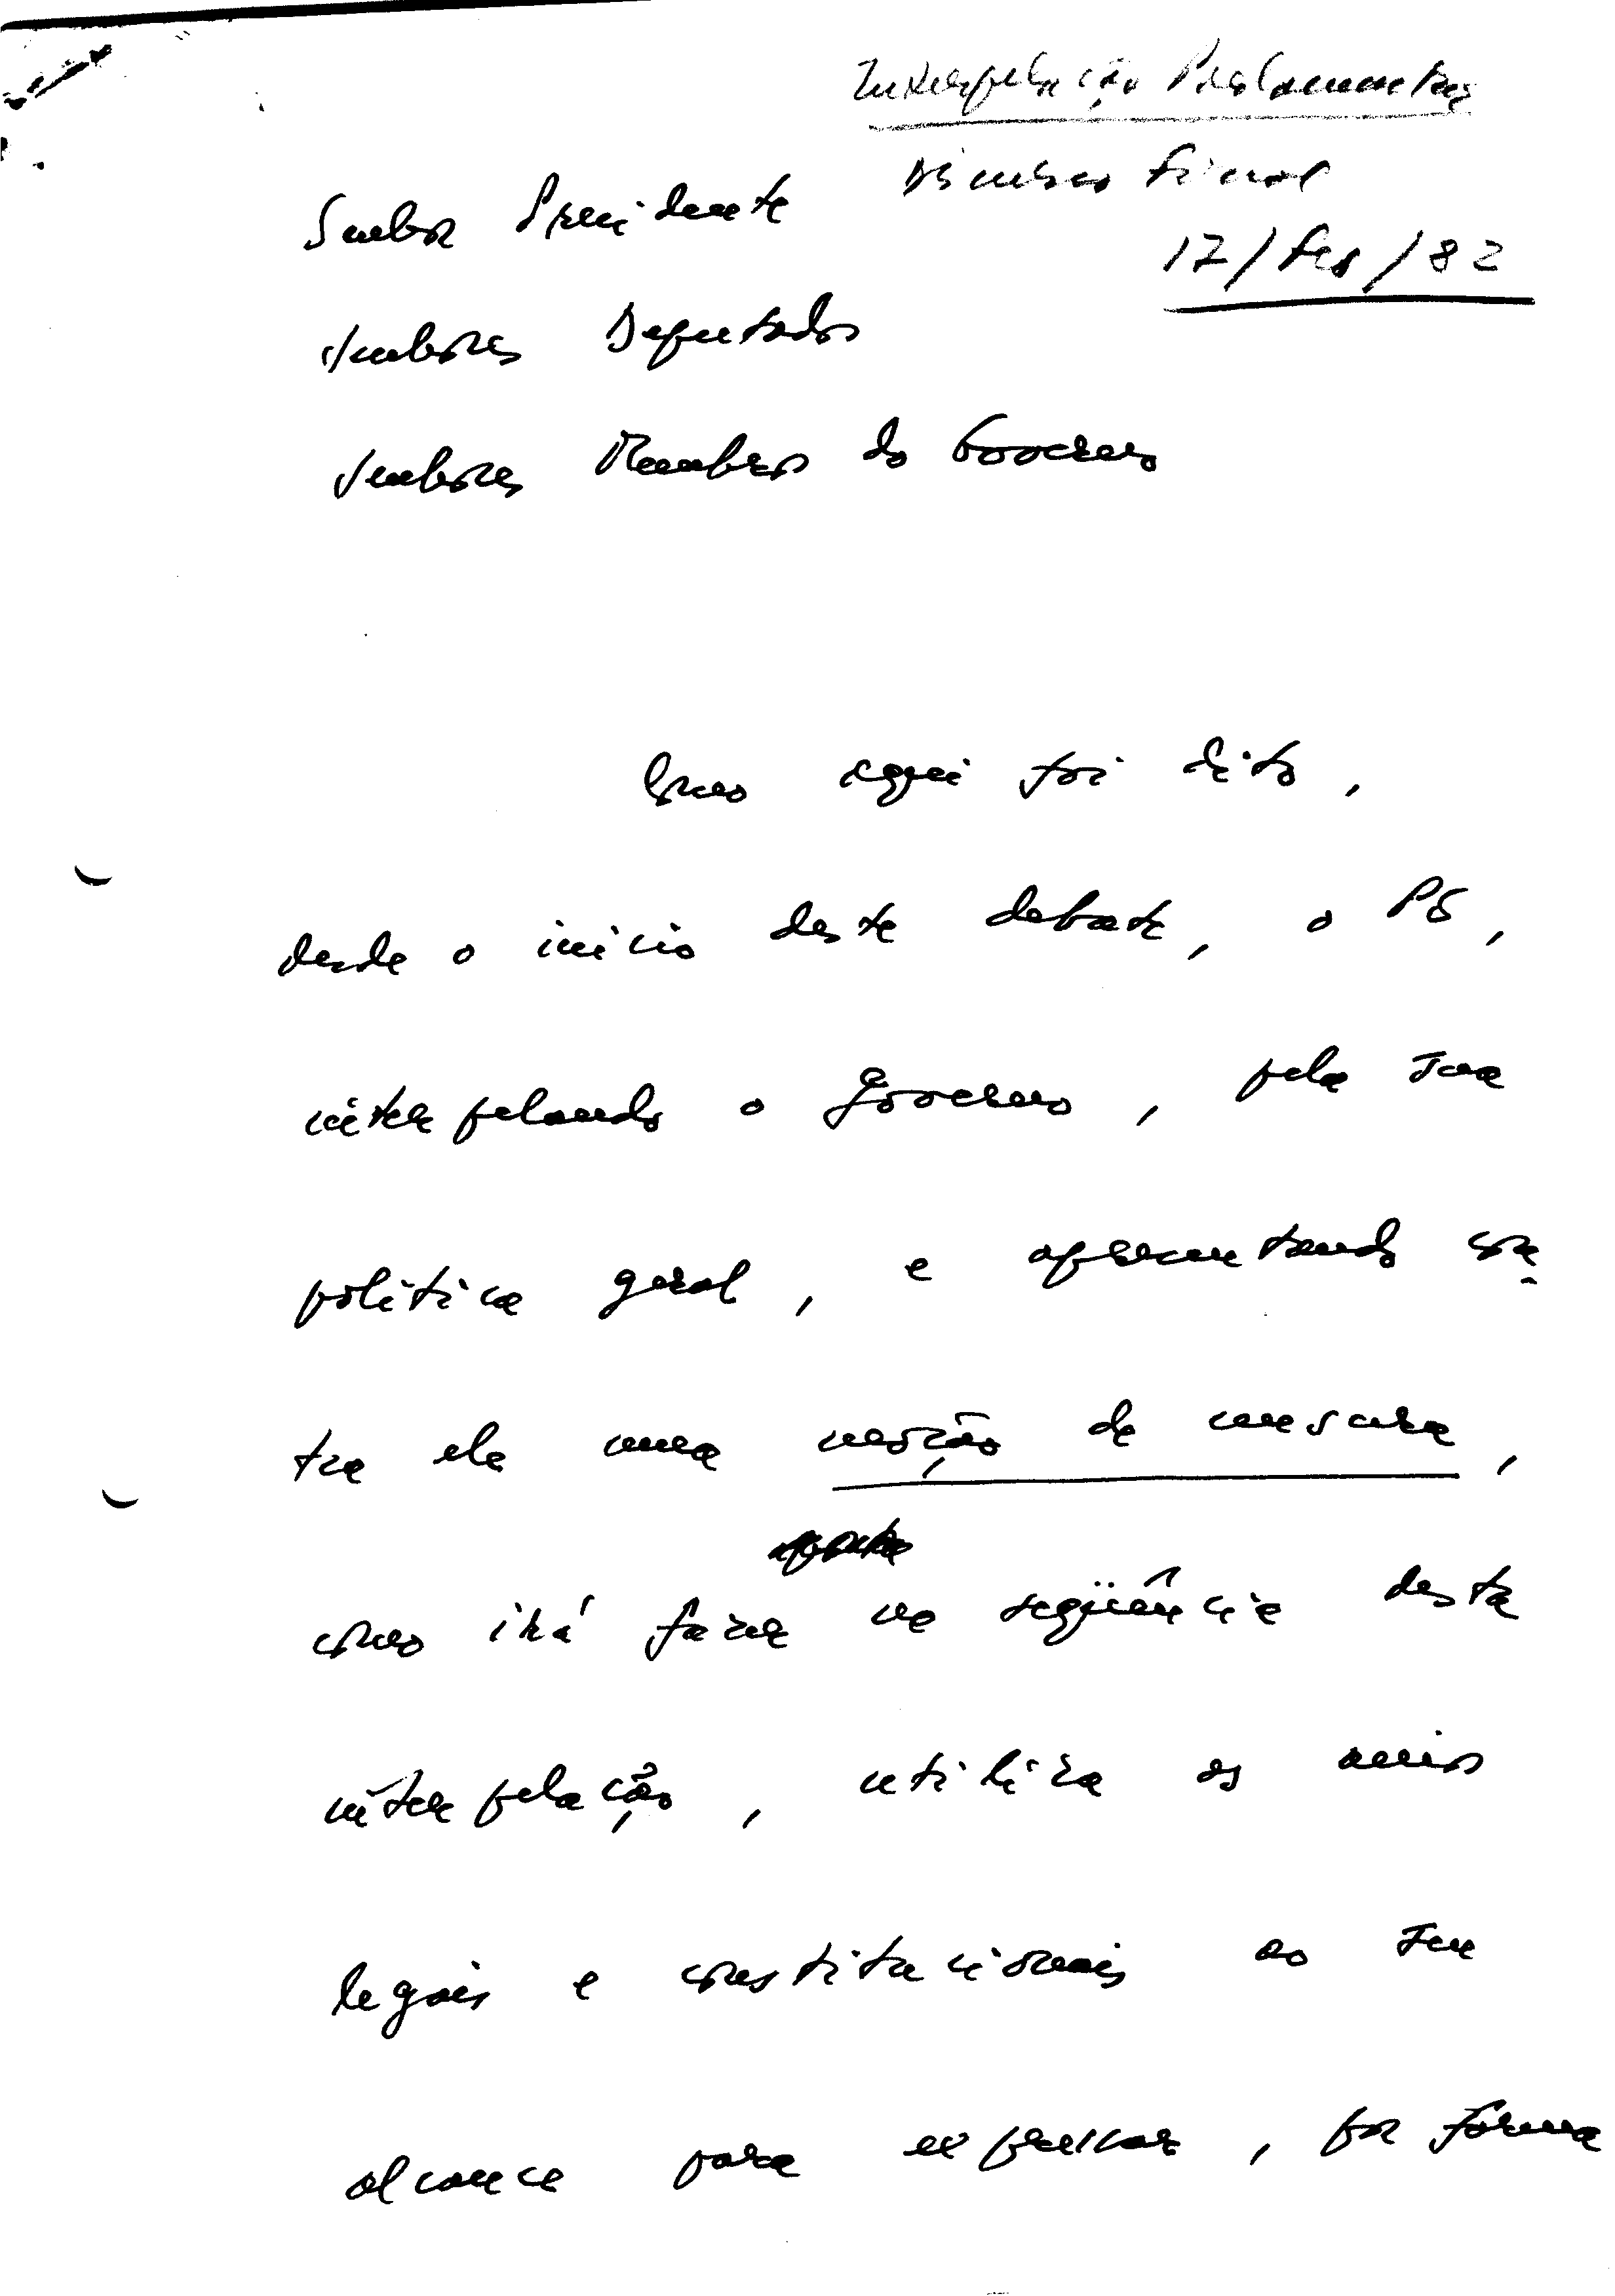 Interpelação Parlamentar
Discurso final
17/Fev/82
Senhor Presidente
Senhores Deputados
Senhores Membros do Governo
Como aqui foi dito,
desde o início deste debate, o PS,
interpelando o Governo, pela sua
política geral, e apresentando con-
tra ele uma moção de censura,
como irá fazer na seqüência desta
interpelação, utiliza os meios
legais e constitucionais ao seu
alcance para expressar, por forma